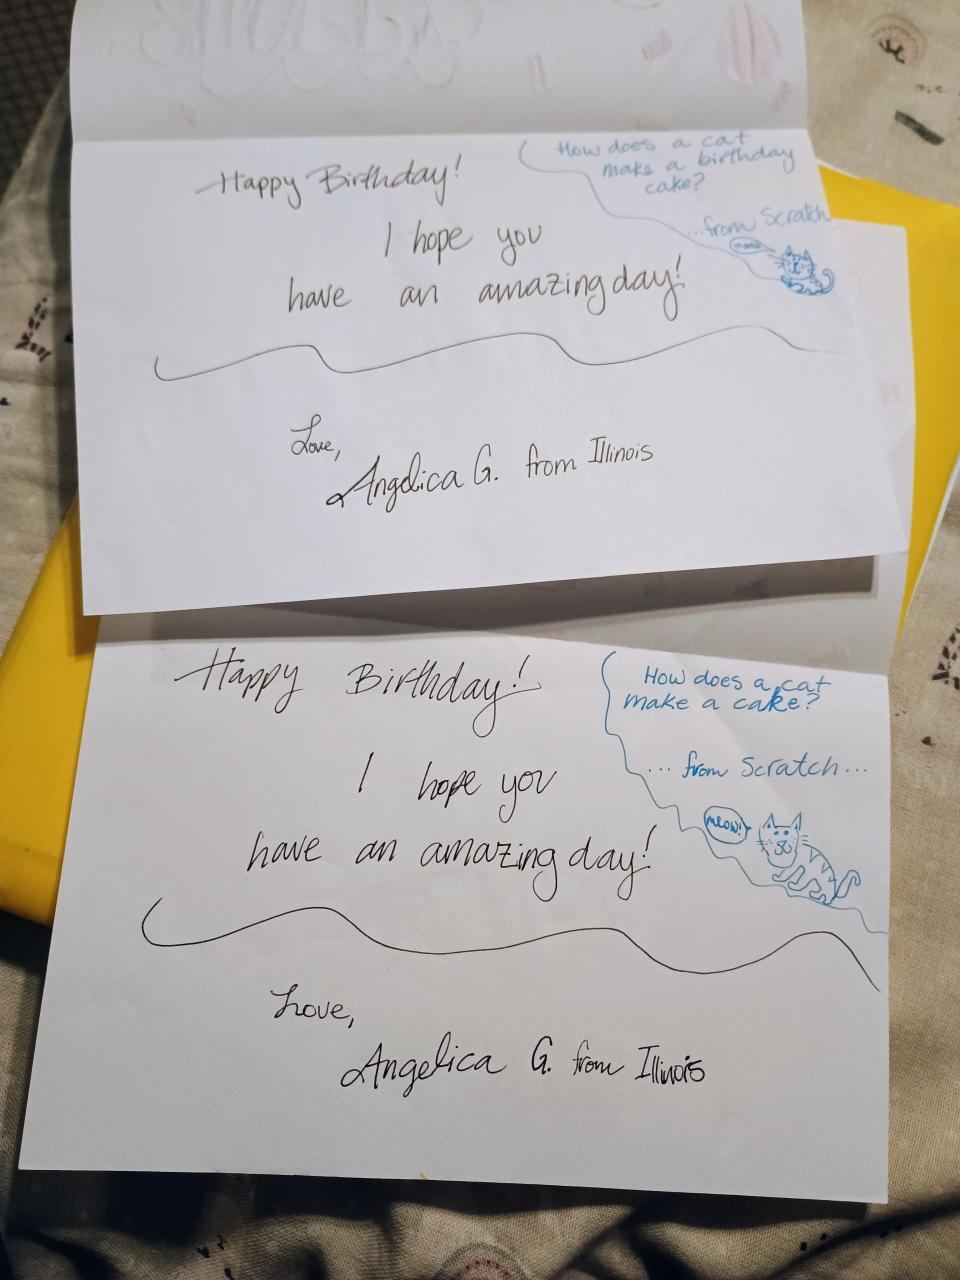 Happy Birthday!
I hope you
have an amazing day!
How does a cat
make a birthday
cake?
...from Scratch.
Love,
Angelica G. from Illinois
Happy Birthday!
I hope you
have an amazing day!
How does a cat
make a cake?
... from Scratch...
meow!
Love,
Angelica G. from Illinois